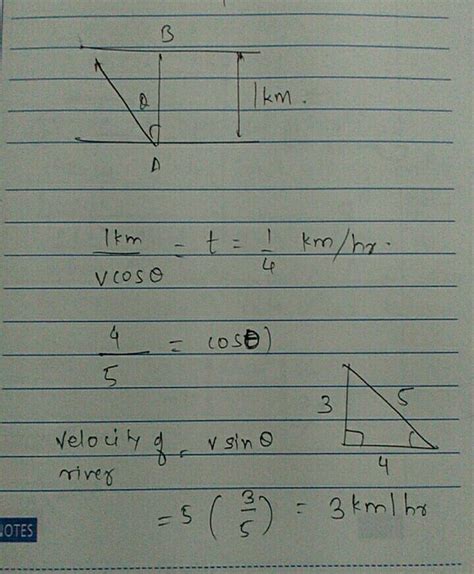 B
θ
1km.
A
1km / vcosθ = t = 1/4 km/hr.
4/5 = cosθ)
3 5
4
velocity of river = v sinθ
= 5 (3/5) = 3km/hr
NOTES